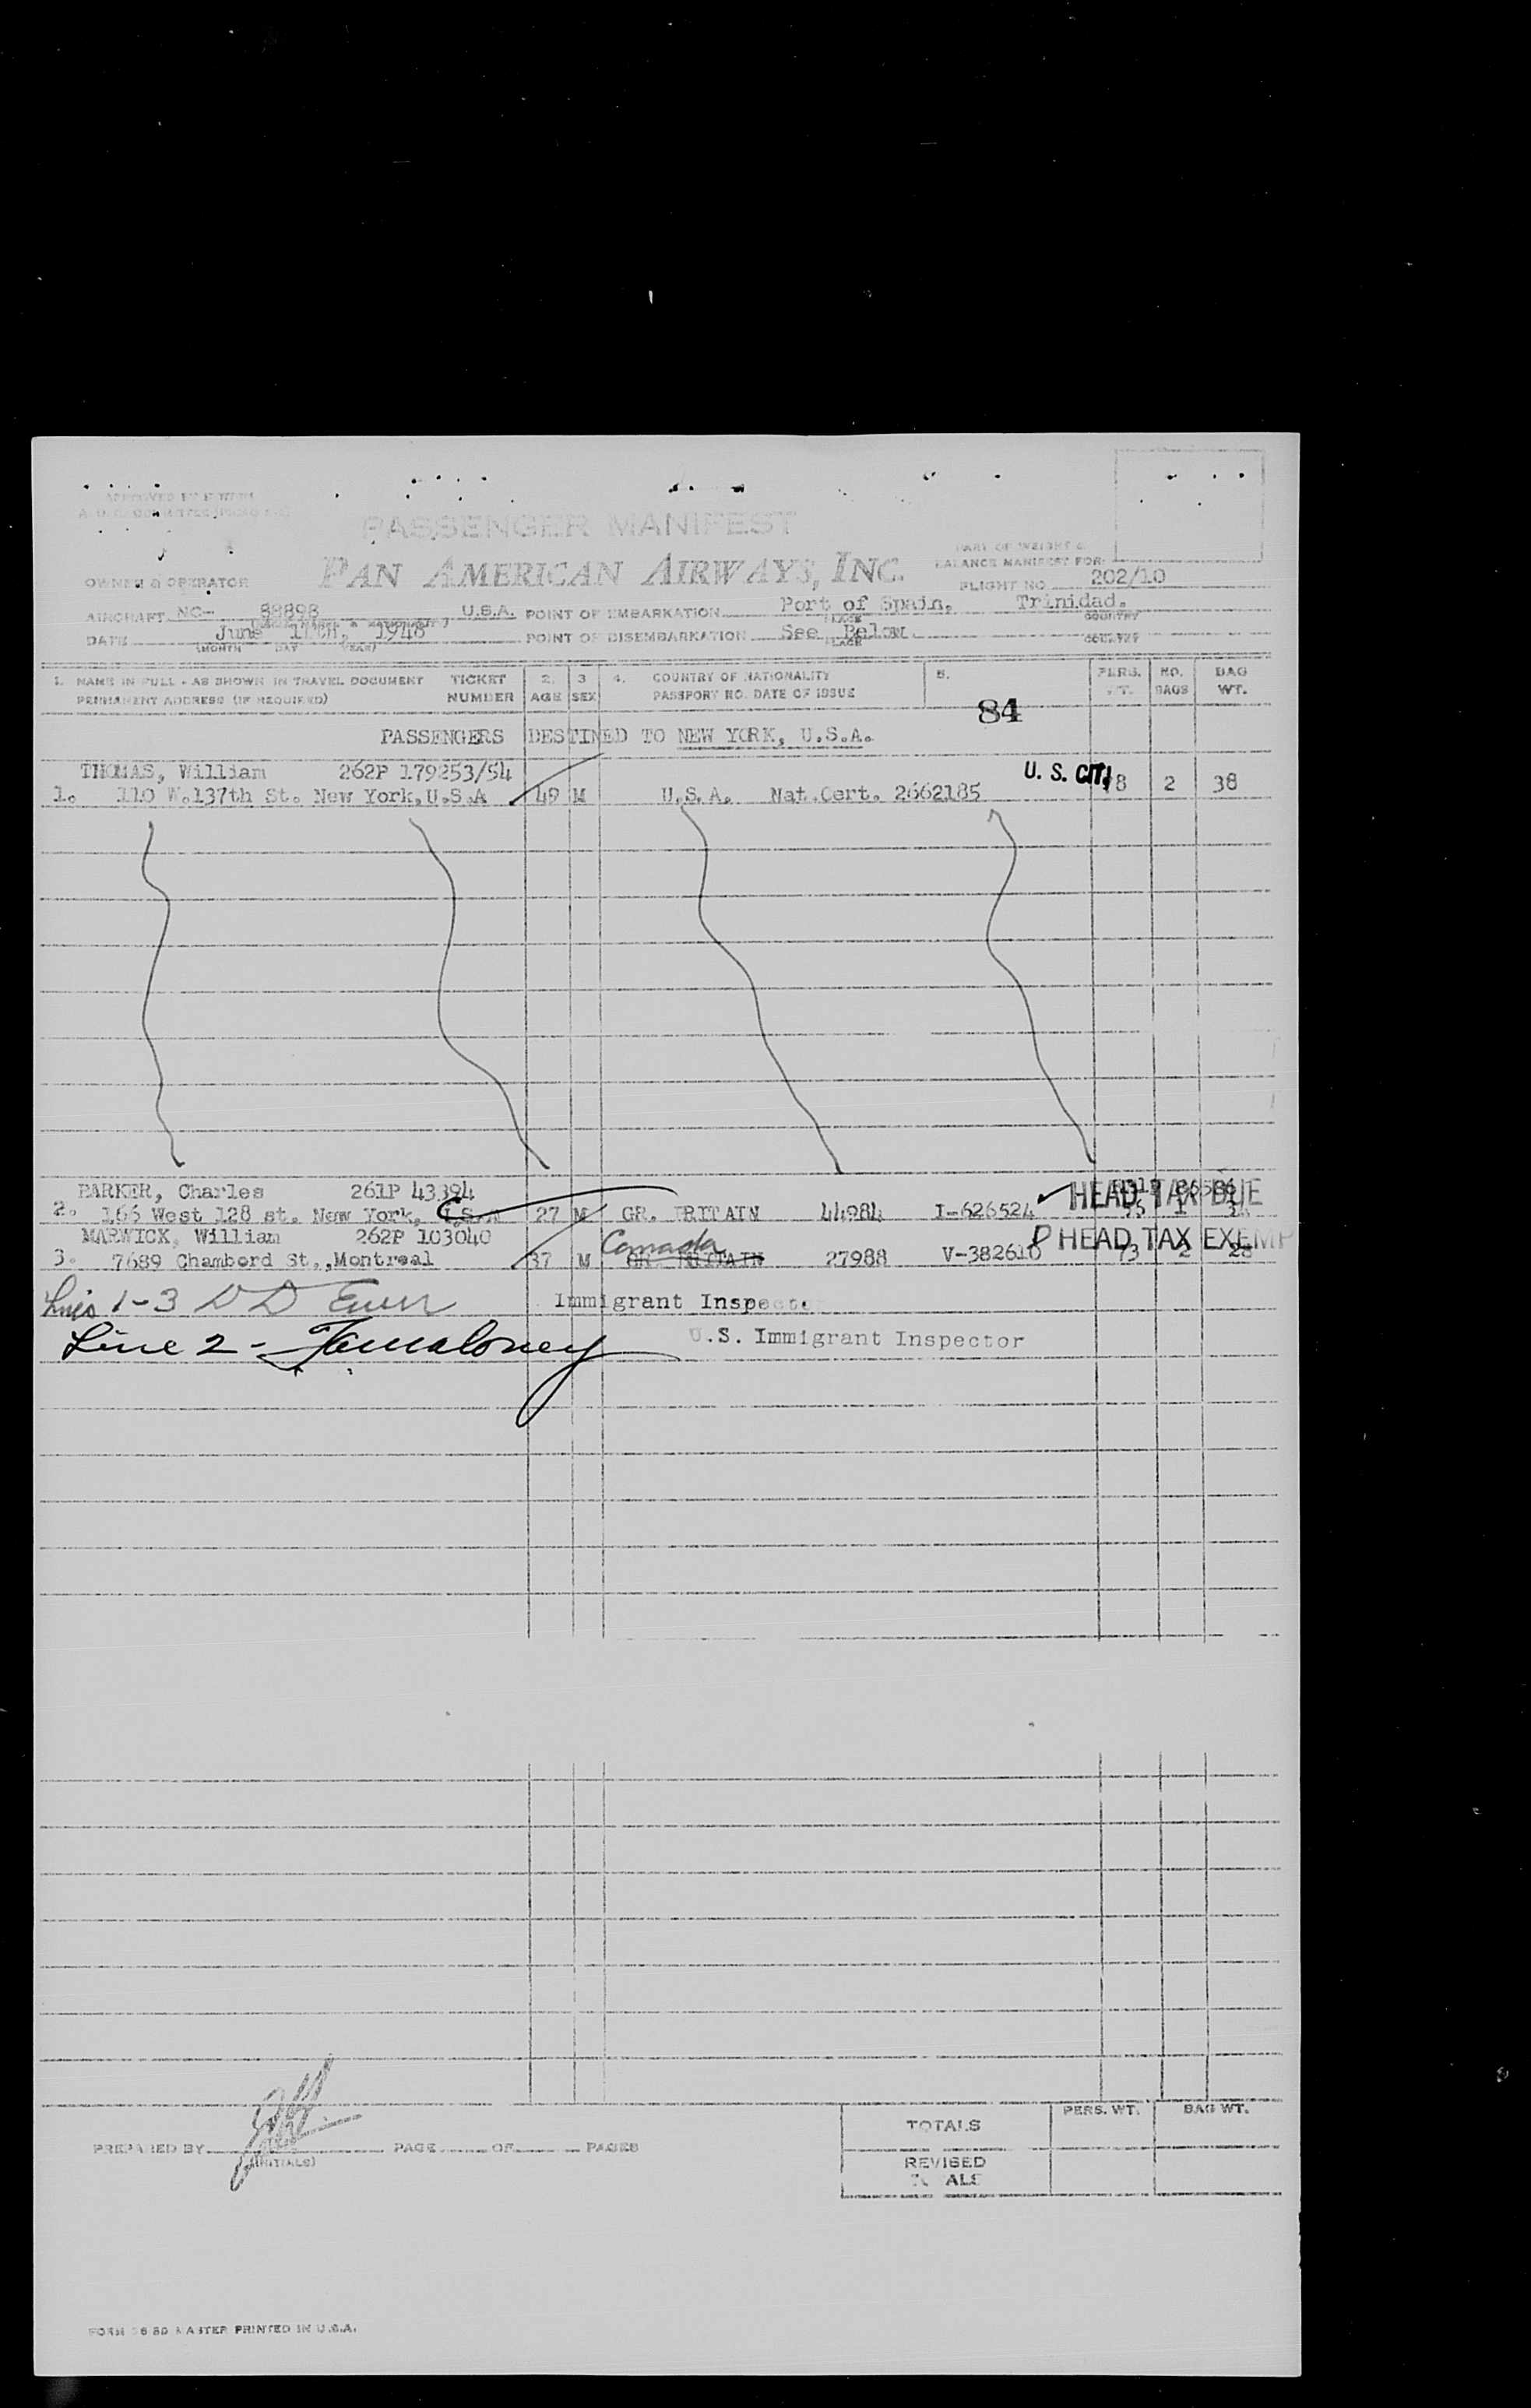 PASSENGER MANIFEST
PAN AMERICAN AIRWAYS, INC.
OWNER & OPERATOR
BALANCE MANIFEST FOR
FLIGHT NO. 202/10
AIRCRAFT NC- 88898 U.S.A. POINT OF EMBARKATION Port of Spain, Trinidad.
PLACE COUNTRY
DATE June 11th, 1948 POINT OF DISEMBARKATION See Below
(MONTH DAY YEAR) PLACE COUNTRY
1. NAME IN FULL - AS SHOWN IN TRAVEL DOCUMENT TICKET 2. 3 4. COUNTRY OF NATIONALITY 5. PERS. NO. BAG
PERMANENT ADDRESS (IF REQUIRED) NUMBER AGE SEX PASSPORT NO. DATE OF ISSUE WT. BAGS WT.
84
PASSENGERS DESTINED TO NEW YORK, U.S.A.
THOMAS, William 262P 179253/54 U. S. CIT
1. 110 W.137th St. New York,U.S.A 49 M U.S.A. Nat.Cert. 2662185 8 2 38
BARKER, Charles 261P 43394 HEAD TAX DUE
2. 166 West 128 st. New York, U.S.A 27 M GR. BRITAIN 44984 I-626524 75 1
MARWICK, William 262P 103040 Canada HEAD TAX EXEMP
3. 7689 Chambord St.,Montreal 37 M GR. BRITAIN 27988 V-382610 73 2 28
Lines 1-3 Immigrant Inspector
Line 2 - U.S. Immigrant Inspector
TOTALS PERS. WT. BAG WT.
PREPARED BY PAGE OF PAGES
(INITIALS) REVISED
TOTALS
MASTER PRINTED IN U.S.A.